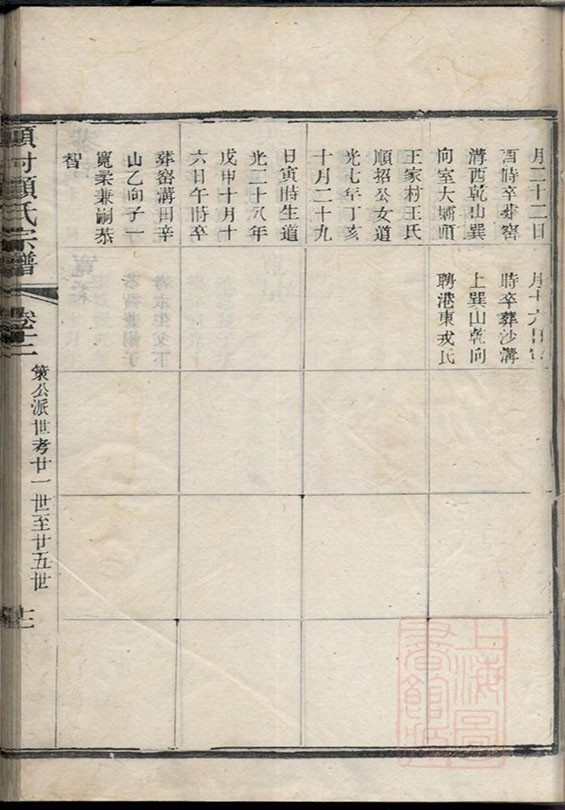 月二十二日
酉時卒葬窑
溝西乾山巽
向室大壩頭
王家村王氏
順招公女道
光七年丁亥
十月二十九
日寅時生道
光二十八年
戊申十月十
六日午時卒
葬窑溝田辛
山乙向子一
寬柔兼嗣恭
智
時卒葬沙溝
上巽山乾向
聘港東戎氏
氏宗譜
卷十二
策公派世考廿一世至廿五世
上海圖書館藏